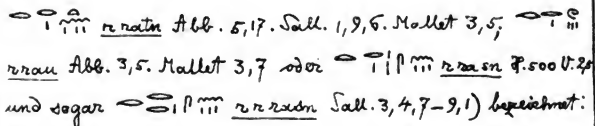 rratn Abb. 5,17. Sall. 1,9,6. Mallet 3,5;
rrau Abb. 3,5. Mallet 3,7 oder rrasn P. 500 V.
und sogar rrrasn Sall. 3,4,7-9,1) bezeichnet: